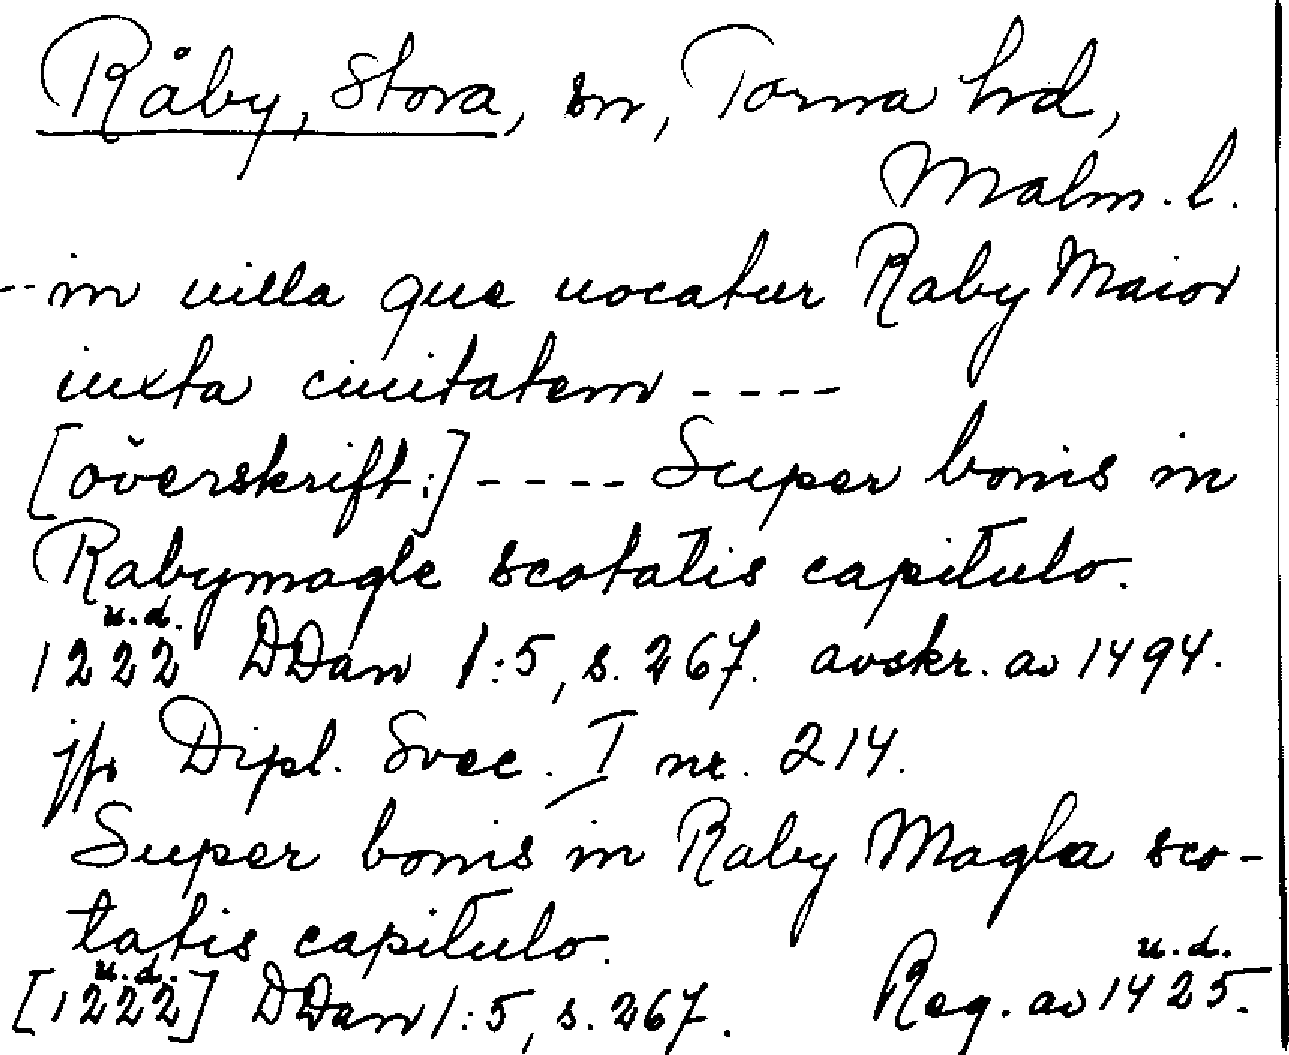 Råby, Stora, sn, Torna hrd,
Malm. l.
--in uilla que uocatur Raby Maior
iuxta ciuitatem ----
[överskrift:] ---- Super bonis in
Rabymagle scotatis capitulo.
u.d.
1222 DDan 1:5, s. 267. avskr. av 1494.
jfr Dipl. Svec. I nr. 214.
Super bonis in Raby Magla sco-
tatis capitulo.
u.d. u.d.
[1222] DDan 1:5, s. 267. Reg. av 1425.